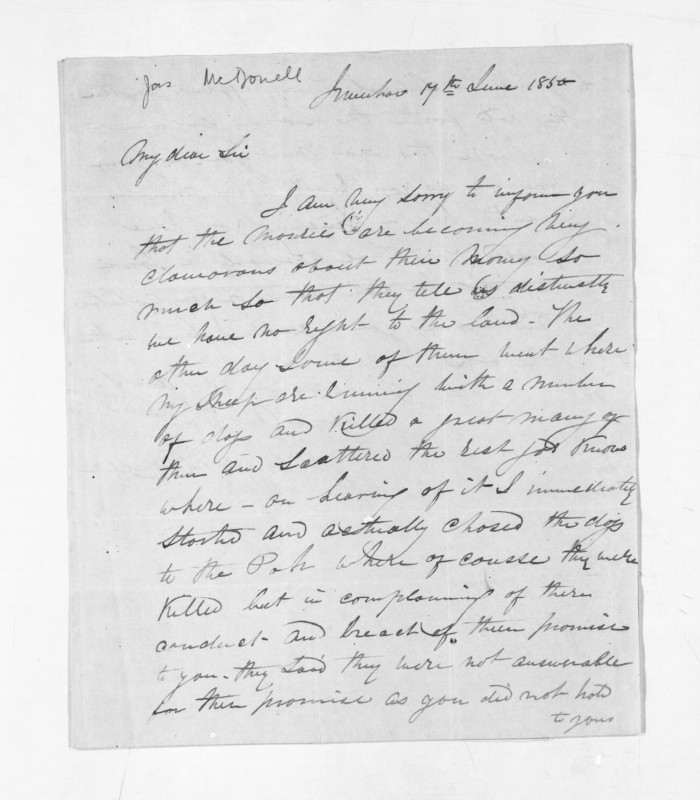 Jas McDonell
17th June 1850
My dear Sir
I am very sorry to inform you
that the mouries are becoming very
clamorous about their money so
much so that they tell us distinctly
we have no right to the land - The
other day some of them went where
my sheep are running with a number
of dogs and killed a great many of
them and scattered the rest god knows
where - on hearing of it I immediately
started and actually chased the dogs
to the Pah where of cousse they were
killed but in complaining of there
conduct and breach of their promise
to you - they said they were not answerable
for their promise as you did not hold
to yours